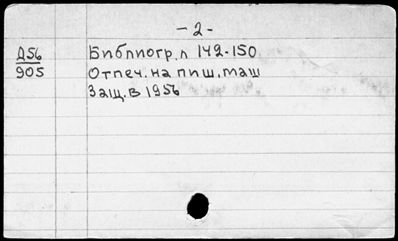 - 2 -
Д56 Библиогр. л 142-150.
905 Отпеч. на пиш. маш
Защ. в 1956